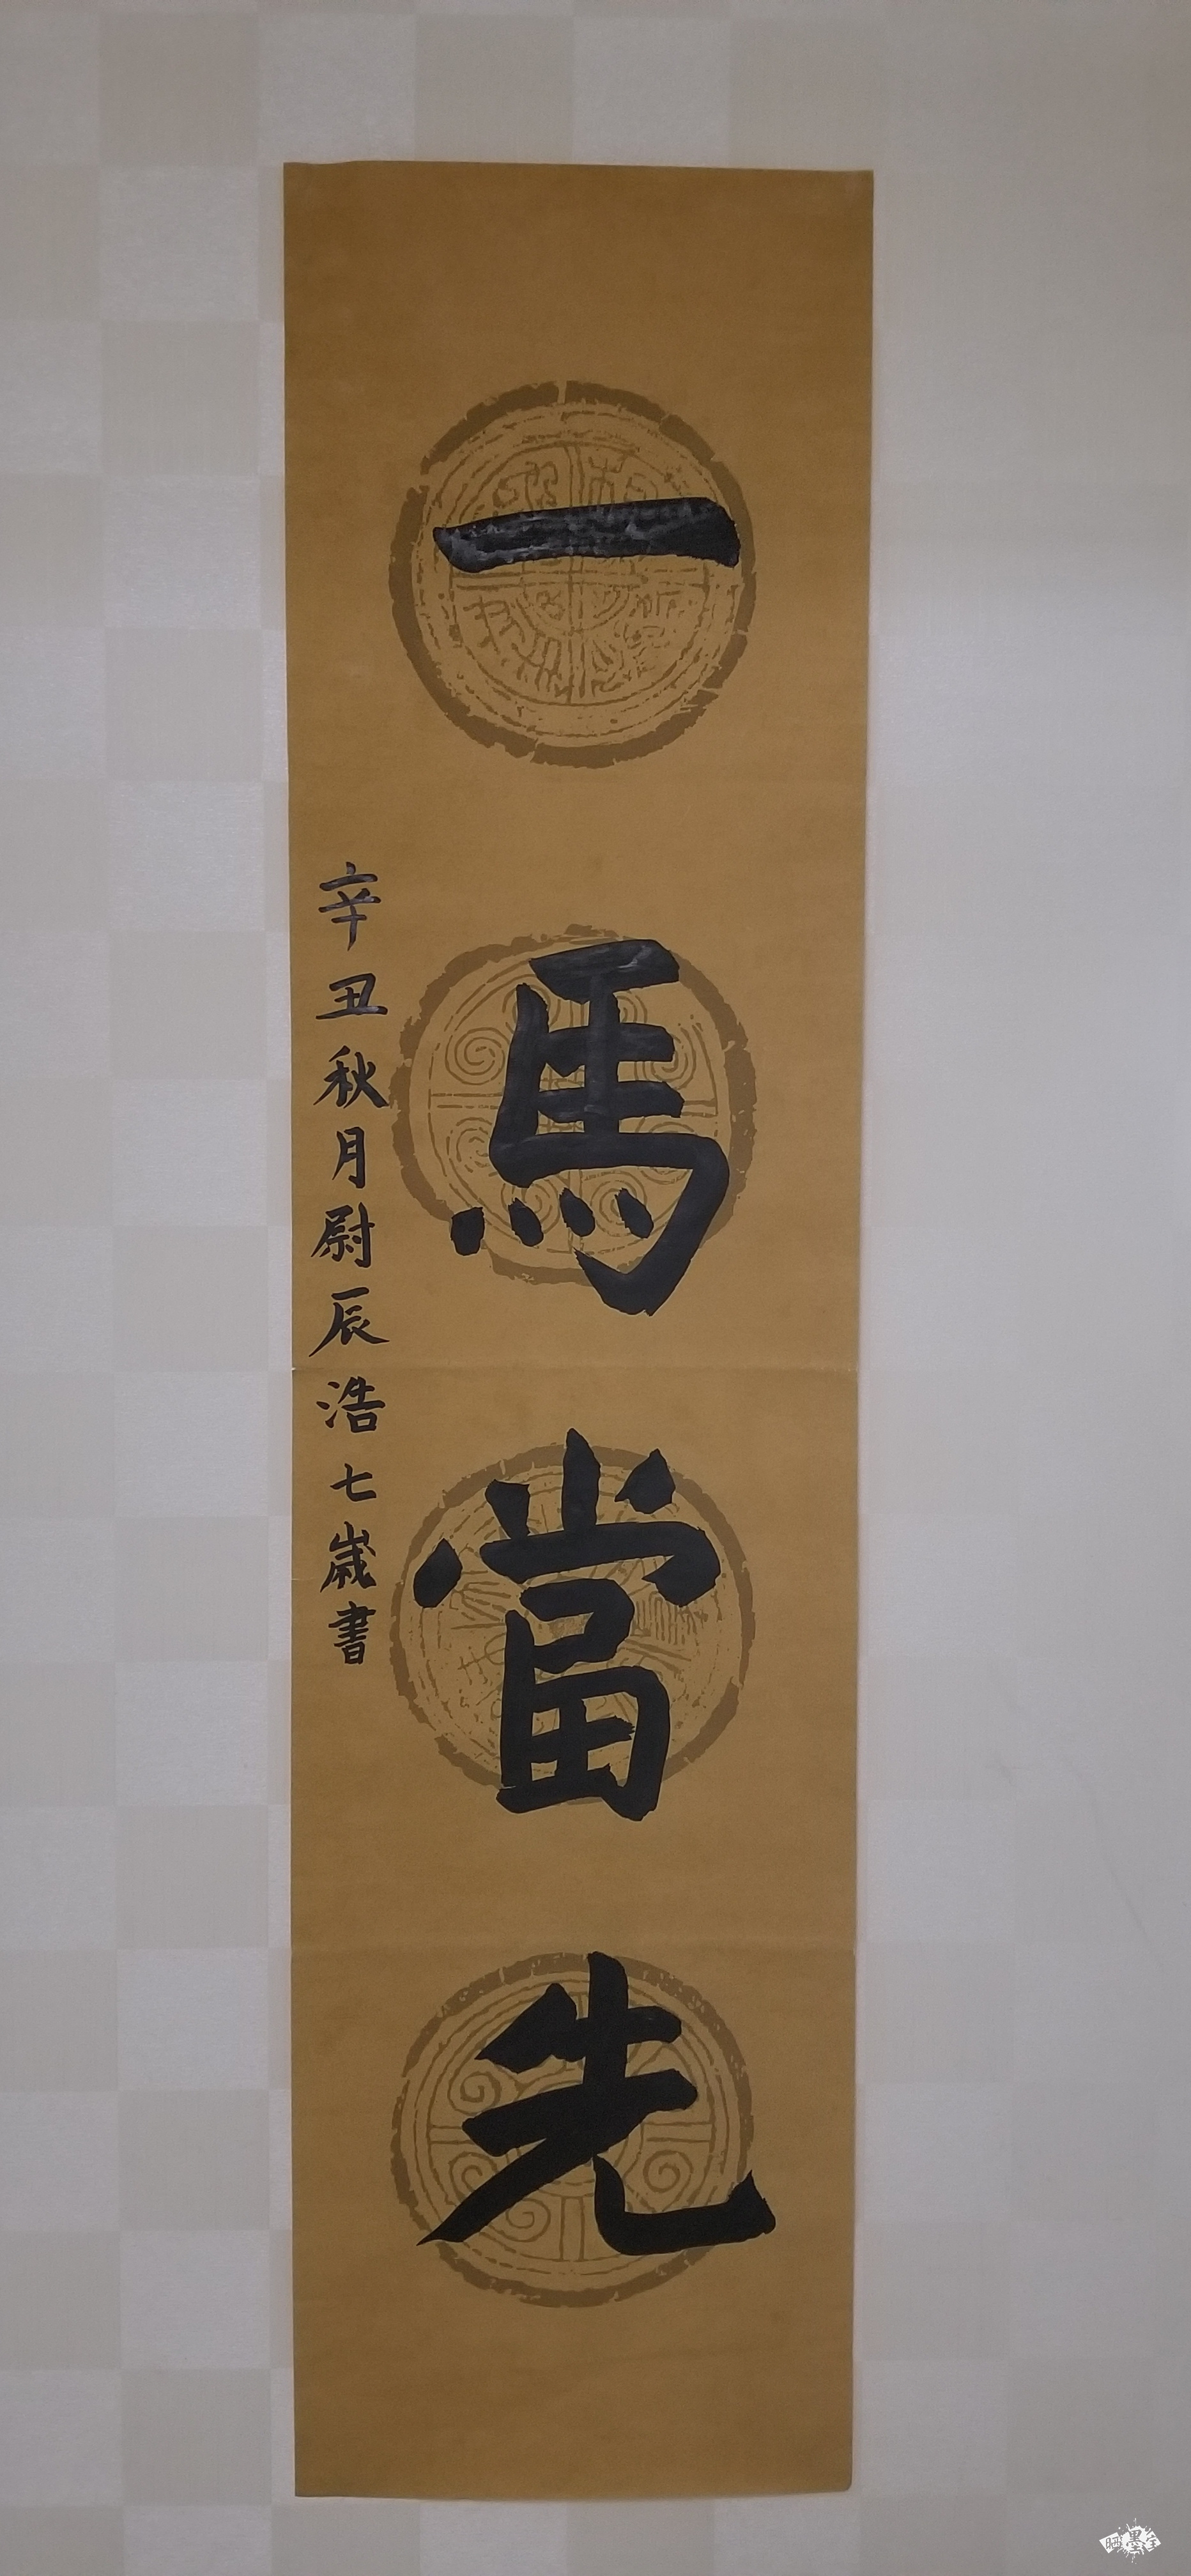 一馬當先
辛丑秋月尉辰浩七歲書